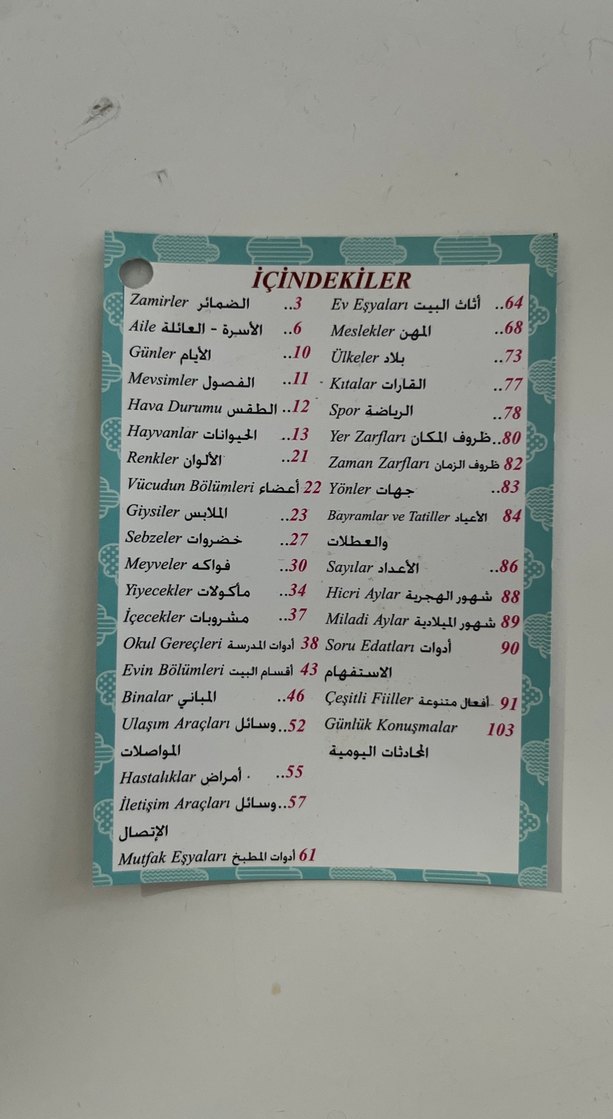 İÇİNDEKİLER
Zamirler الضمائر ..3
Aile الأسرة - العائلة ..6
Günler الأيام ..10
Mevsimler الفصول ..11
Hava Durumu الطقس ..12
Hayvanlar الحيوانات ..13
Renkler الألوان ..21
Vücudun Bölümleri أعضاء 22
Giysiler الملابس ..23
Sebzeler خضروات ..27
Meyveler فواكه ..30
Yiyecekler مأكولات ..34
İçecekler مشروبات ..37
Okul Gereçleri أدوات المدرسة 38
Evin Bölümleri أقسام البيت 43
Binalar المباني ..46
Ulaşım Araçları وسائل ..52
المواصلات
Hastalıklar أمراض ..55
İletişim Araçları وسائل ..57
الإتصال
Mutfak Eşyaları أدوات المطبخ 61
Ev Eşyaları أثاث البيت ..64
Meslekler المهن ..68
Ülkeler بلاد ..73
Kıtalar القارات ..77
Spor الرياضة ..78
Yer Zarfları ظروف المكان ..80
Zaman Zarfları ظروف الزمان 82
Yönler جهات ..83
Bayramlar ve Tatiller الأعياد 84
والعطلات
Sayılar الأعداد ..86
Hicri Aylar شهور الهجرية 88
Miladi Aylar شهور الميلادية 89
Soru Edatları أدوات 90
الاستفهام
Çeşitli Fiiller أفعال متنوعة 91
Günlük Konuşmalar 103
المحادثات اليومية